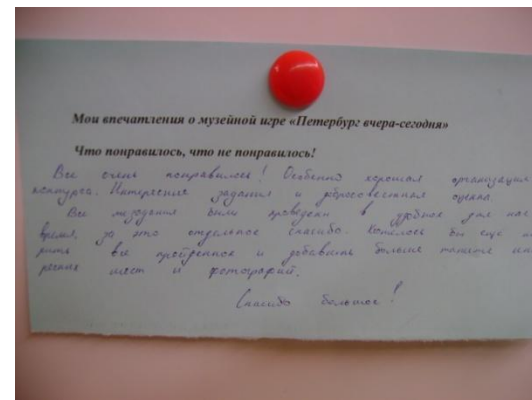 Мои впечатления о музейной игре «Петербург вчера-сегодня»
Что понравилось, что не понравилось!
Все очень понравилось! Особенно хорошая организация
конкурса. Интересные задания и добросовестная оценка
Все были проведены в удобное для нас
время, за это отдельное спасибо. Хотелось бы еще
все пройденное и добавить больше
мест и фотографий.
Спасибо большое!